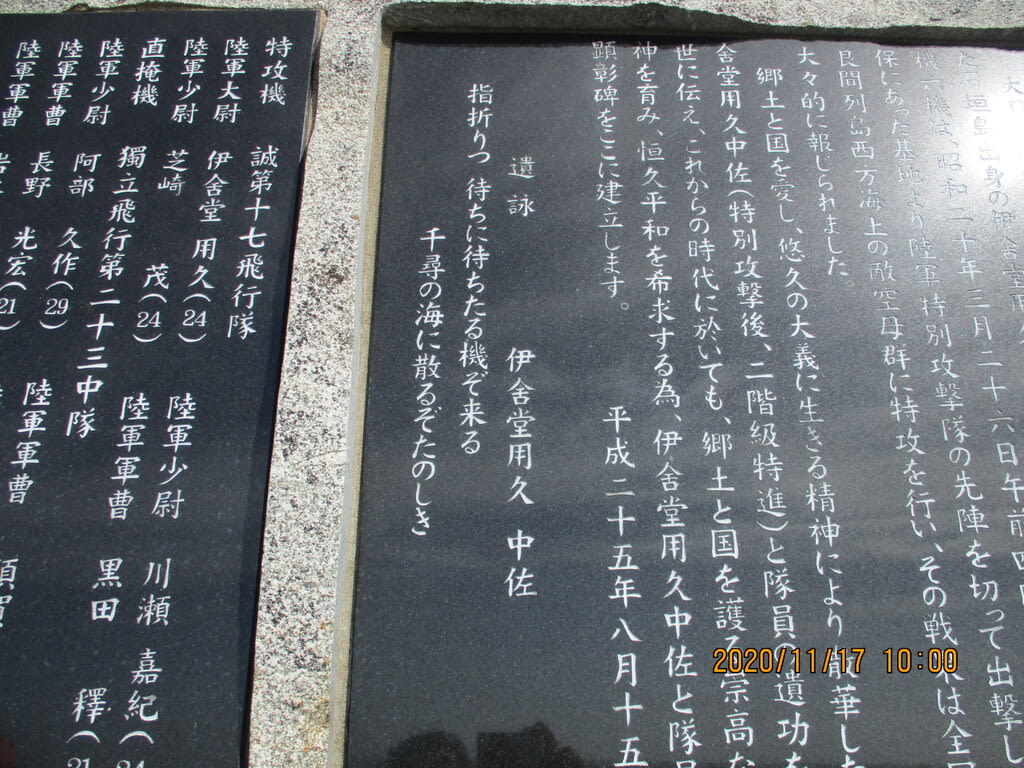 石垣島出身の伊舍堂用久
機六機は、昭和二十年三月二十六日午前四
保にあった基地より陸軍特別攻撃隊の先陣を切って出撃し
良間列島西方海上の敵空母群に特攻を行い、その戦果は全
大々的に報じられました。
郷土と国を愛し、悠久の大義に生きる精神により散華した
舍堂用久中佐(特別攻撃後、二階級特進)と隊員の遺功を
世に伝え、これからの時代に於いても、郷土と国を護る崇高な
神を育み、恒久平和を希求する為、伊舍堂用久中佐と隊員
顕彰碑をここに建立します。
平成二十五年八月十五
遺詠 伊舍堂用久 中佐
指折りつ 待ちに待ちたる機ぞ来る
千尋の海に散るぞたのしき
特攻機 誠第十七飛行隊
陸軍大尉 伊舍堂 用久(24) 陸軍少尉 川瀬 嘉紀(24
陸軍少尉 芝崎 茂(24) 陸軍軍曹 黒田 釋(21
直掩機 獨立飛行第二十三中隊
陸軍少尉 阿部 久作(29) 陸軍軍曹
陸軍軍曹 長野 光宏(21)
陸軍軍曹
2020/11/17 10:00